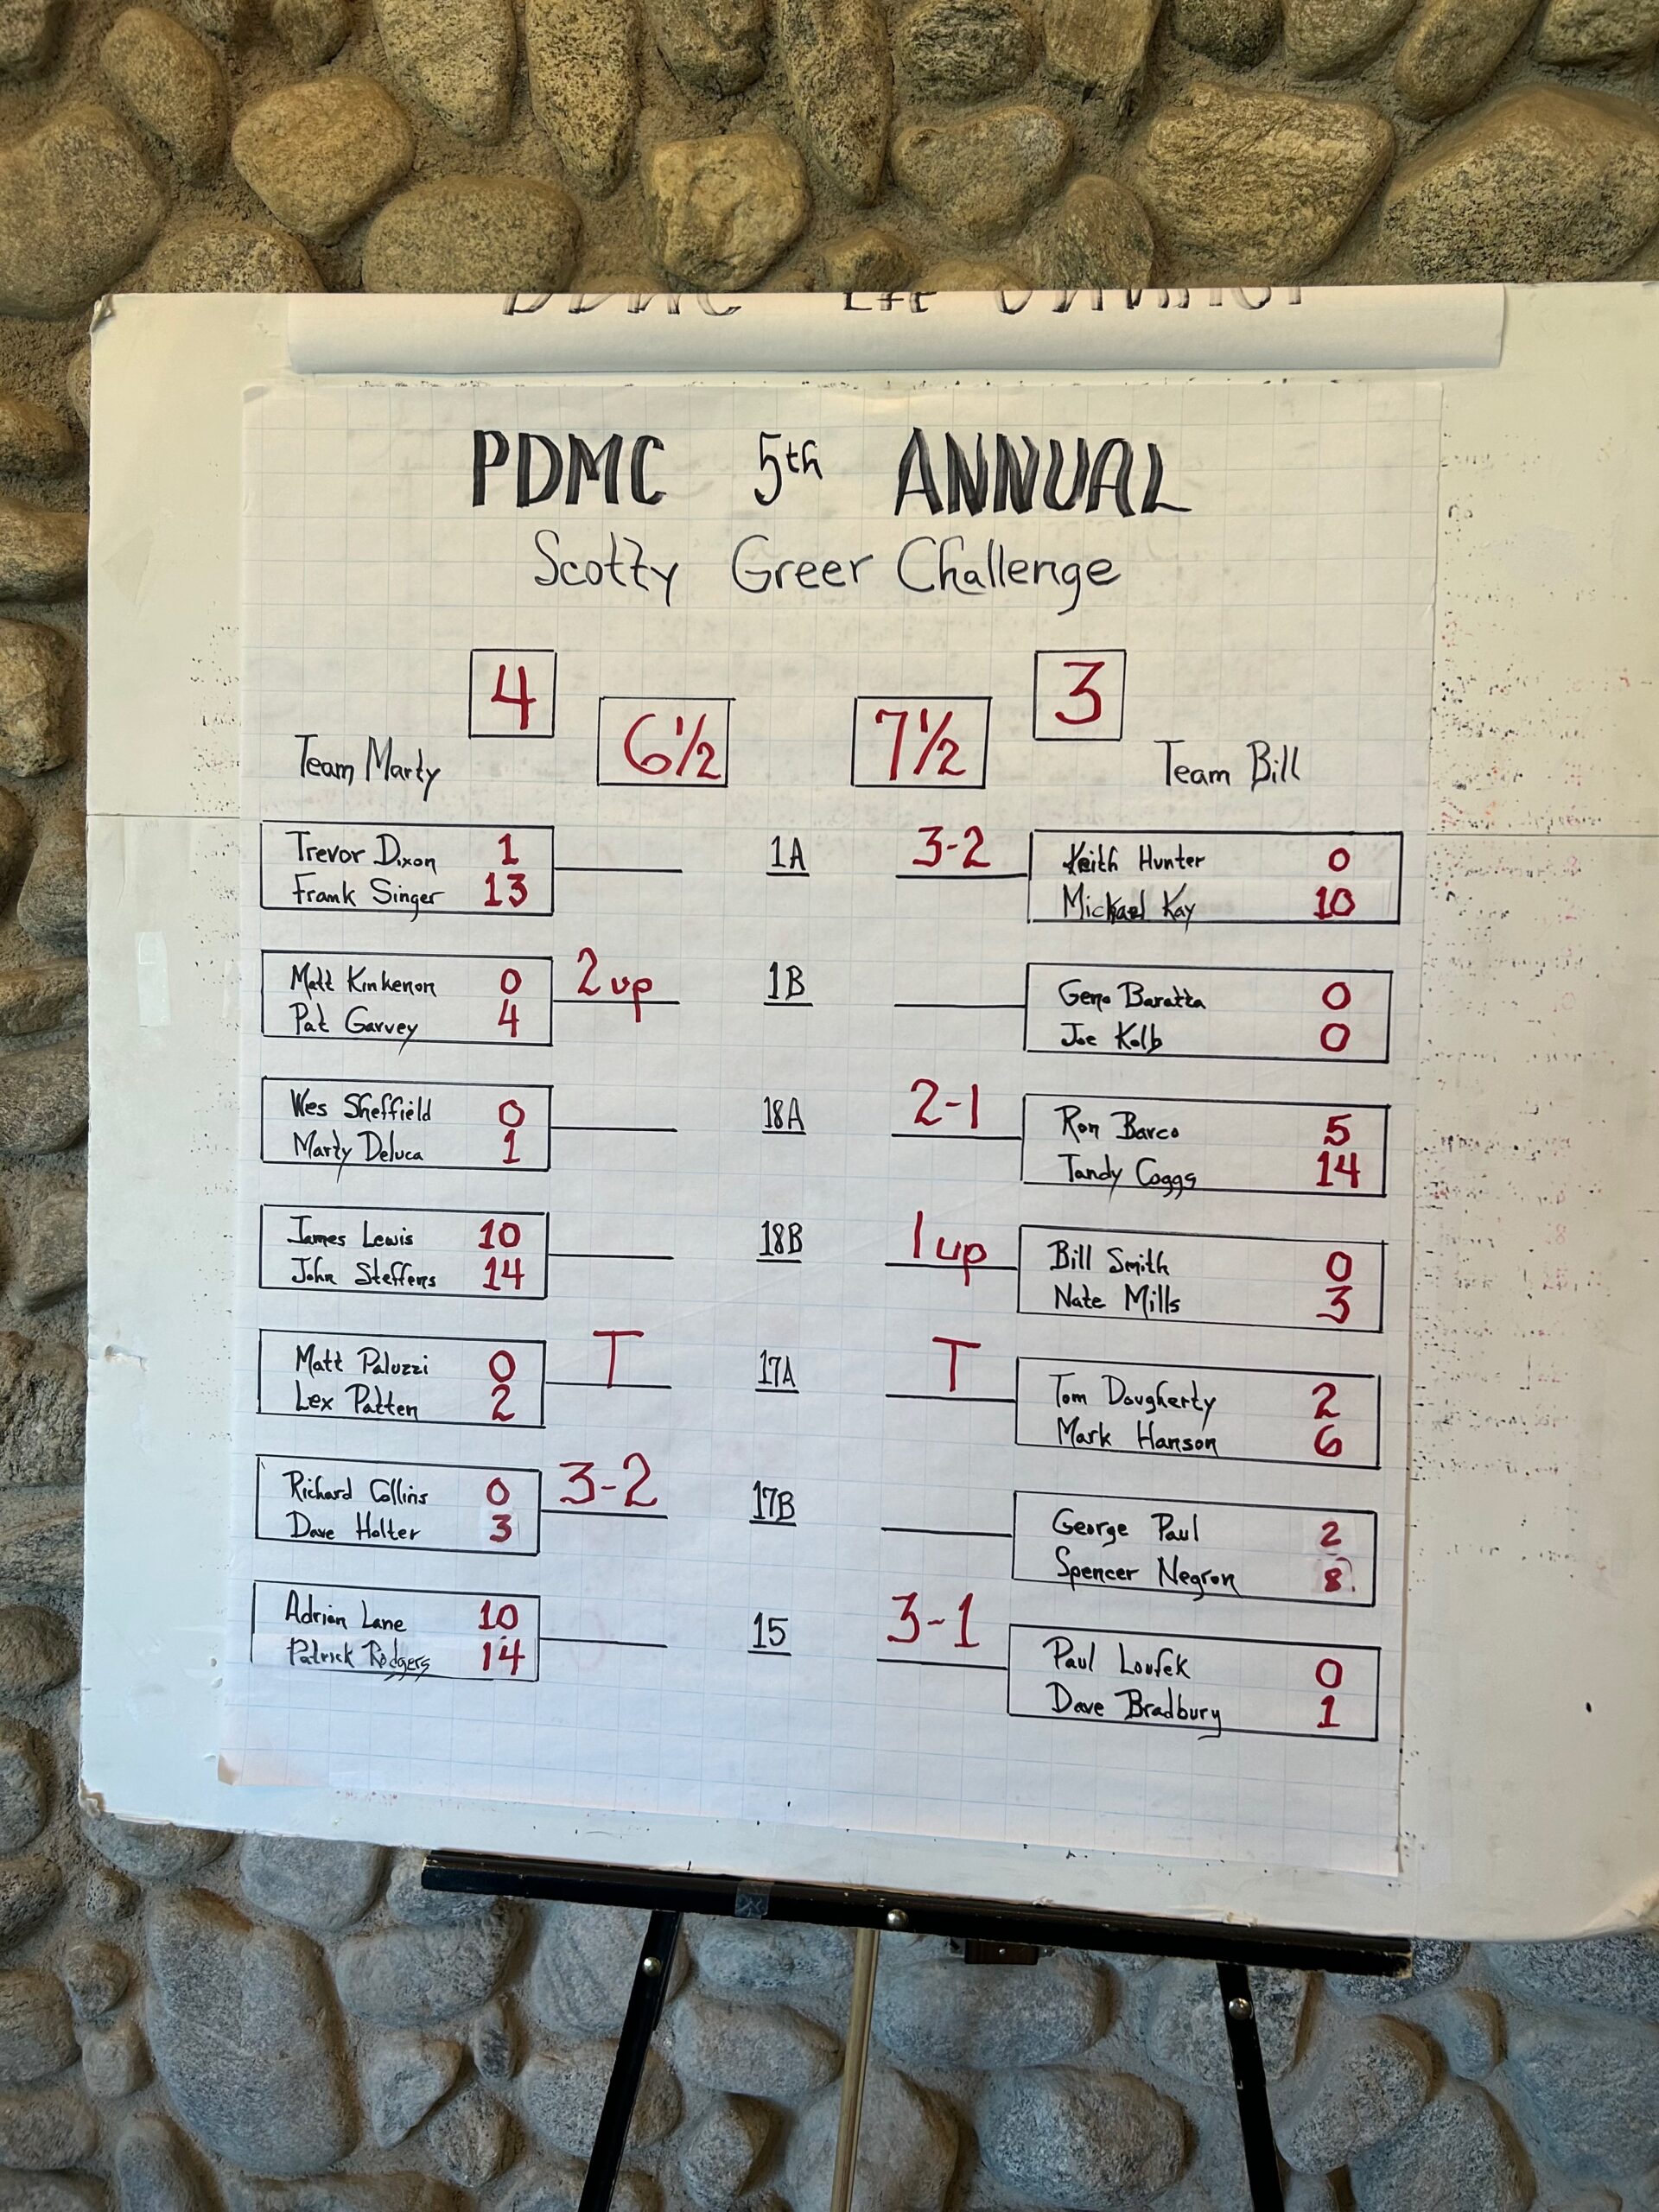 PDMC 5th ANNUAL
Scotty Greer Challenge
4 3
6 1/2 7 1/2
Team Marty Team Bill
Trevor Dixon 1 1A 3-2 Keith Hunter 0
Frank Singer 13 Michael Kay 10
Matt Kinkenon 0 2 up 1B Geno Baratta 0
Pat Garvey 4 Joe Kolb 0
Wes Sheffield 0 18A 2-1 Ron Barco 5
Marty Deluca 1 Tandy Coggs 14
James Lewis 10 18B 1 up Bill Smith 0
John Steffens 14 Nate Mills 3
Matt Paluzzi 0 T 17A T Tom Dougherty 2
Lex Patten 2 Mark Hanson 6
Richard Collins 0 3-2 17B George Paul 2
Dave Holter 3 Spencer Negron 8
Adrian Lane 10 15 3-1 Paul Loufek 0
Patrick Rodgers 14 Dave Bradbury 1